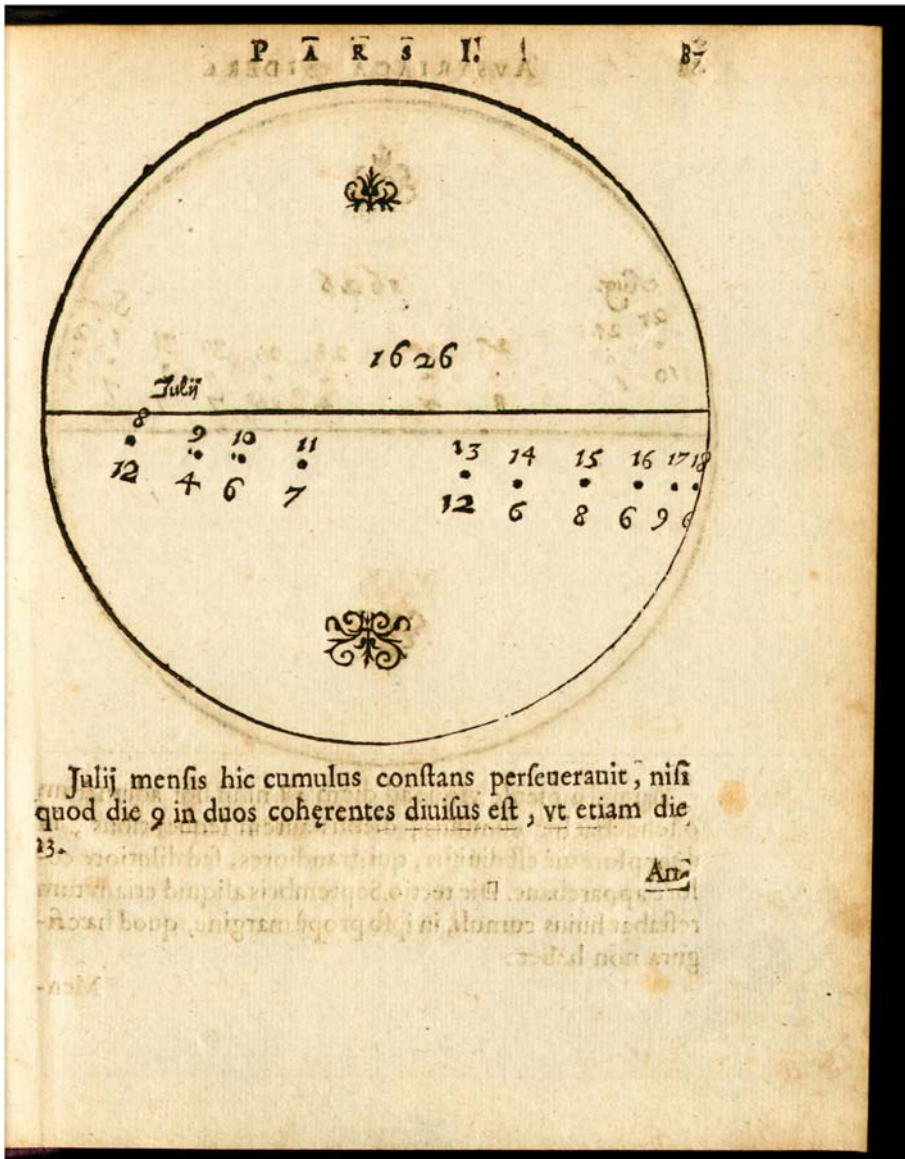 PARS I.
1626
Julij
8 9 10 11 13 14 15 16 17 18
12 4 6 7 12 6 8 6 9 6
Julij mensis hic cumulus constans perseuerauit, nisi
quod die 9 in duos cohęrentes diuisus est, vt etiam die